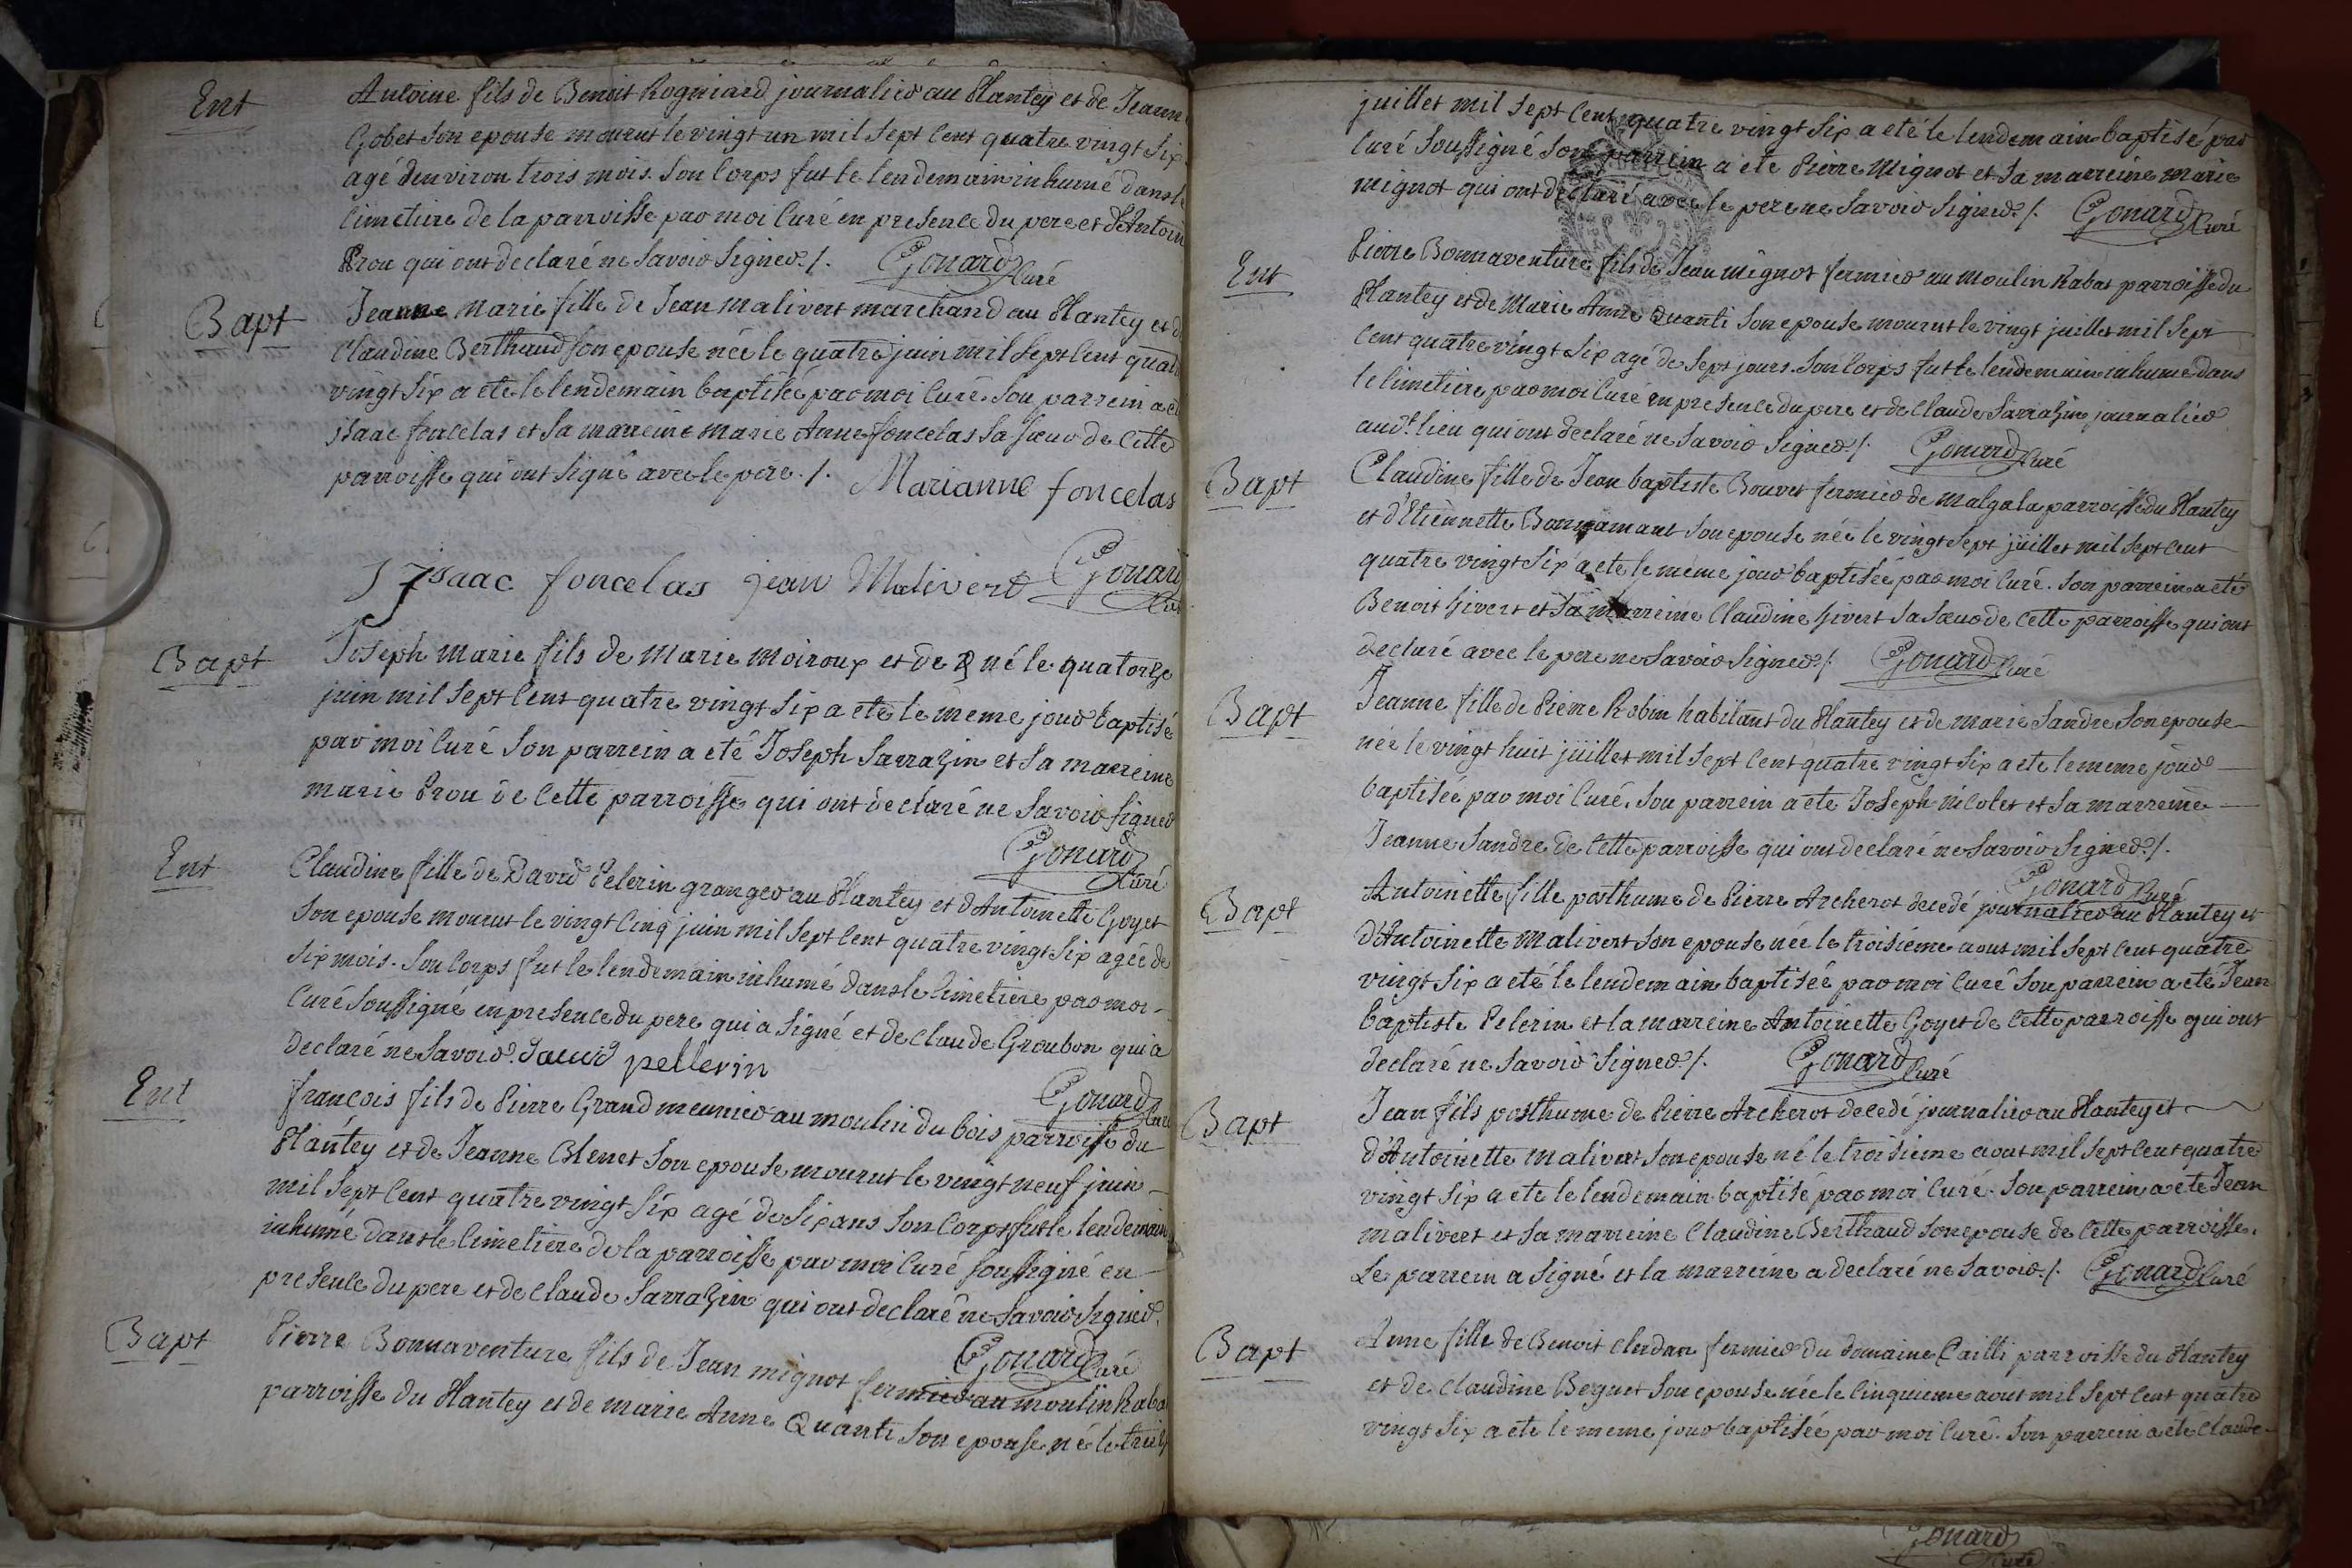 Ent
Antoine fils de Benoit Rogniard journalier au Plantey et de Jeanne
Gobet son epouse mourut le vingt un mil sept cent quatre vingt six
agé denviron trois mois. Son corps fut le lendemain inhumé dans le
cimetiere de la parroisse par moi curé en presence du pere et d'Antoine
Prou qui ont declaré ne savoir signer./. Gonard Curé
Bapt
Jeanne Marie fille de Jean Malivert marchand au Plantey et de
Claudine Berthaud son epouse née le quatre juin mil sept cent quatre
vingt six a eté le lendemain baptisée par moi curé. Son parrein a eté
isaac foncelas et sa marreine Marie Anne foncelas sa sœur de cette
parroisse qui ont signé avec le pere./. Marianne foncelas
isaac foncelas jean Malivert Gonard Curé
Bapt
Joseph Marie fils de Marie Moiroux et de né le quatorze
juin mil sept cent quatre vingt six a eté le meme jour baptisé
par moi curé son parrein a eté Joseph Sarrazin et sa marreine
marie Prou de cette parroisse qui ont declaré ne savoir signer
Gonard Curé
Ent
Claudine fille de David Pelerin granger au Plantey et d'Antoinette Goyet
son epouse mourut le vingt cinq juin mil sept cent quatre vingt six agée de
six mois. Son corps fut le lendemain inhumé dans le cimetiere par moi
curé soussigné en presence du pere qui a signé et de Claude Groubon qui a
declaré ne savoir. david pellerin
Gonard Curé
Ent
francois fils de Pierre Grand meunier au moulin du bois parroisse du
Plantey et de Jeanne Blenet son epouse mourut le vingt neuf juin
mil sept cent quatre vingt six agé de six ans son corps fut le lendemain
inhumé dans le cimetiere de la parroisse par moi curé soussigné en
presence du pere et de Claude Sarrazin qui ont declaré ne savoir signer.
Gonard Curé
Bapt
Pierre Bonnaventure fils de Jean mignot fermier au moulin Rabat
parroisse du Plantey et de marie Anne Quanti son epouse né le treize
juillet mil sept cent quatre vingt six a eté le lendemain baptisé par
curé soussigné son parrein a eté Pierre Mignot et sa marreine marie
mignot qui ont declaré avec le pere ne savoir signer./. Gonard Curé
Ent
Pierre Bonnaventure fils de Jean mignot fermier au moulin Rabat parroisse du
Plantey et de Marie Anne Quanti son epouse mourut le vingt juillet mil sept
cent quatre vingt six agé de sept jours. Son corps fut le lendemain inhumé dans
le cimetiere par moi curé en presence du pere et de Claude Sarrazin journalier
aud.t lieu qui ont declaré ne savoir signer./. Gonard Curé
Bapt
Claudine fille de Jean baptiste Bouvet fermier de malgala parroisse du Plantey
et d'Etiennette Bonnamant son epouse née le vingt sept juillet mil sept cent
quatre vingt six a eté le même jour baptisée par moi curé. Son parrein a eté
Benoit Givert et sa marreine Claudine Givert sa sœur de cette parroisse qui ont
declaré avec le pere ne savoir signer./. Gonard Curé
Bapt
Jeanne fille de Pierre Robin habitant du Plantey et de marie Sandre son epouse
née le vingt huit juillet mil sept cent quatre vingt six a eté le meme jour
baptisée par moi curé. Son parrein a eté Joseph Nicolet et sa marreine
Jeanne Sandre de cette parroisse qui ont declaré ne savoir signer./.
Gonard Curé
Bapt
Antoinette fille posthume de Pierre Archerot decedé journalier au Plantey et
d'Antoinette Malivert son epouse née le troisième aout mil sept cent quatre
vingt six a eté le lendemain baptisée par moi curé son parrein a eté Jean
baptiste Pelerin et la marreine Antoinette Goyet de cette parroisse qui ont
declaré ne savoir signer./. Gonard Curé
Bapt
Jean fils posthume de Pierre Archerot decedé journalier au Plantey et
d'Antoinette Malivert son epouse né le troisieme aout mil sept cent quatre
vingt six a eté le lendemain baptisé par moi curé. Son parrein a eté Jean
malivert et sa marreine Claudine Berthaud son epouse de cette parroisse.
Le parrein a signé et la marreine a declaré ne savoir./. Gonard Curé
Bapt
Anne fille de Benoit Cherdan fermier du domaine Cailli parroisse du Plantey
et de Claudine Beguet son epouse née le cinquieme aout mil sept cent quatre
vingt six a eté le meme jour baptisée par moi curé. Son parrein a eté Claude
Gonard
Curé